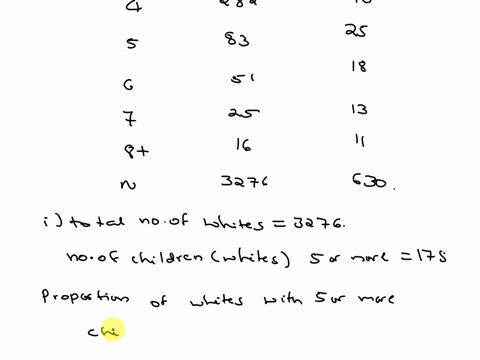 4 282
5 83 25
6 51 18
7 25 13
8+ 16 11
N 3276 630.
i) total no. of whites = 3276.
no. of children (whites) 5 or more = 175
Proportion of whites with 5 or more
chi